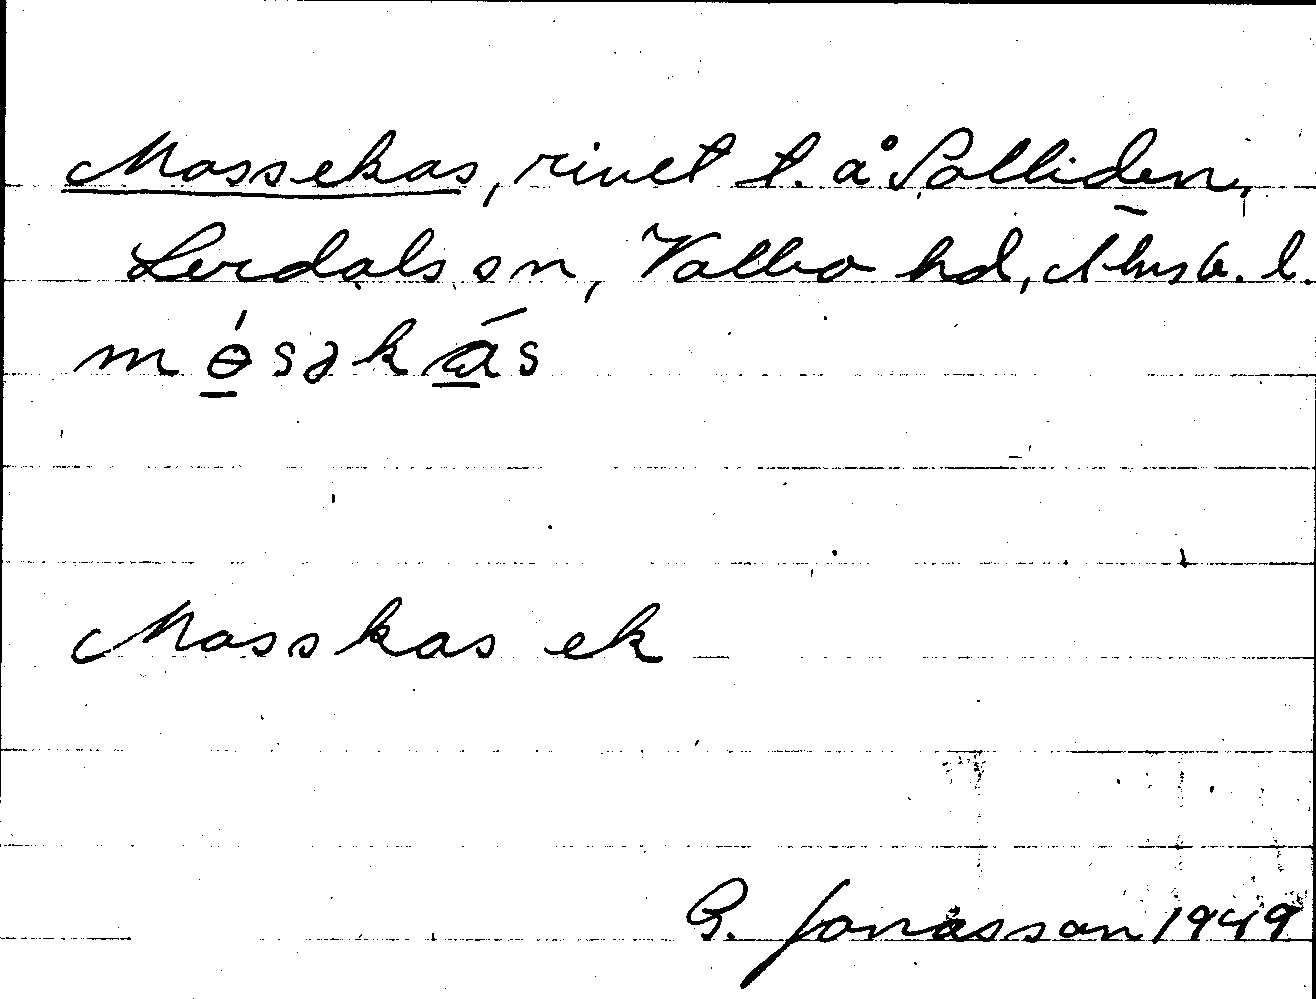 Massekas, rivet t. å Solliden,
Lerdals sn, Valbo hd, Älvsb. l.
mɵ́səkás
Masskas ek
G. Jonasson 1949